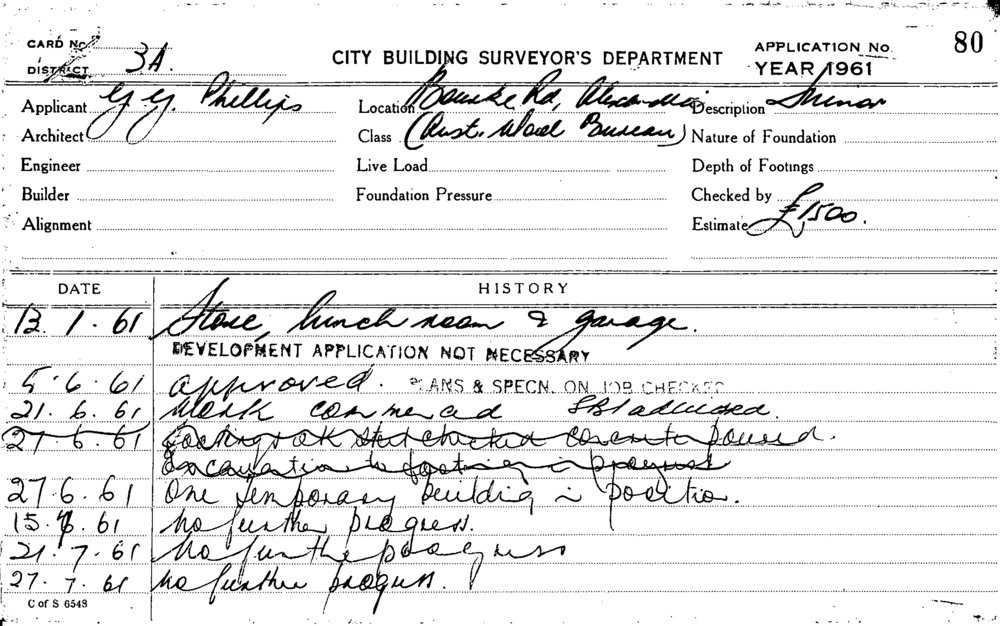 CARD No.
CITY BUILDING SURVEYOR'S DEPARTMENT
APPLICATION No. 80
DISTRICT 3A.
YEAR 1961
Applicant G. G. Phillips Location Bourke Rd, Alexandria Description Minor
Architect Class (Aust. Wool Bureau) Nature of Foundation
Engineer Live Load Depth of Footings
Builder Foundation Pressure Checked by
Alignment Estimate £1,500.
DATE HISTORY
13.1.61 Store, lunch room & garage.
DEVELOPMENT APPLICATION NOT NECESSARY
5.6.61 approved. PLANS & SPECN. ON JOB CHECKED
21.6.61 Work commenced
27.6.61 footings OK steel checked concrete poured.
excavation to footings in progress
27.6.61 One temporary building in position.
15.7.61 No further progress.
21.7.61 No further progress
27.7.61 No further progress.
C of S 6548